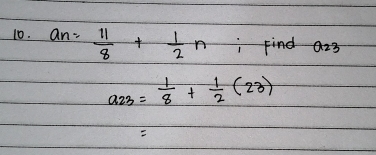 10. an = 11/8 + 1/2 n ; Find a23
a23 = 1/8 + 1/2 (23)
=